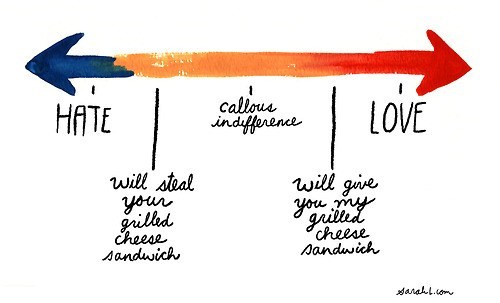 HATE
callous
indifference
LOVE
will steal
your
grilled
cheese
sandwich
will give
you my
grilled
cheese
sandwich
sarahl.com